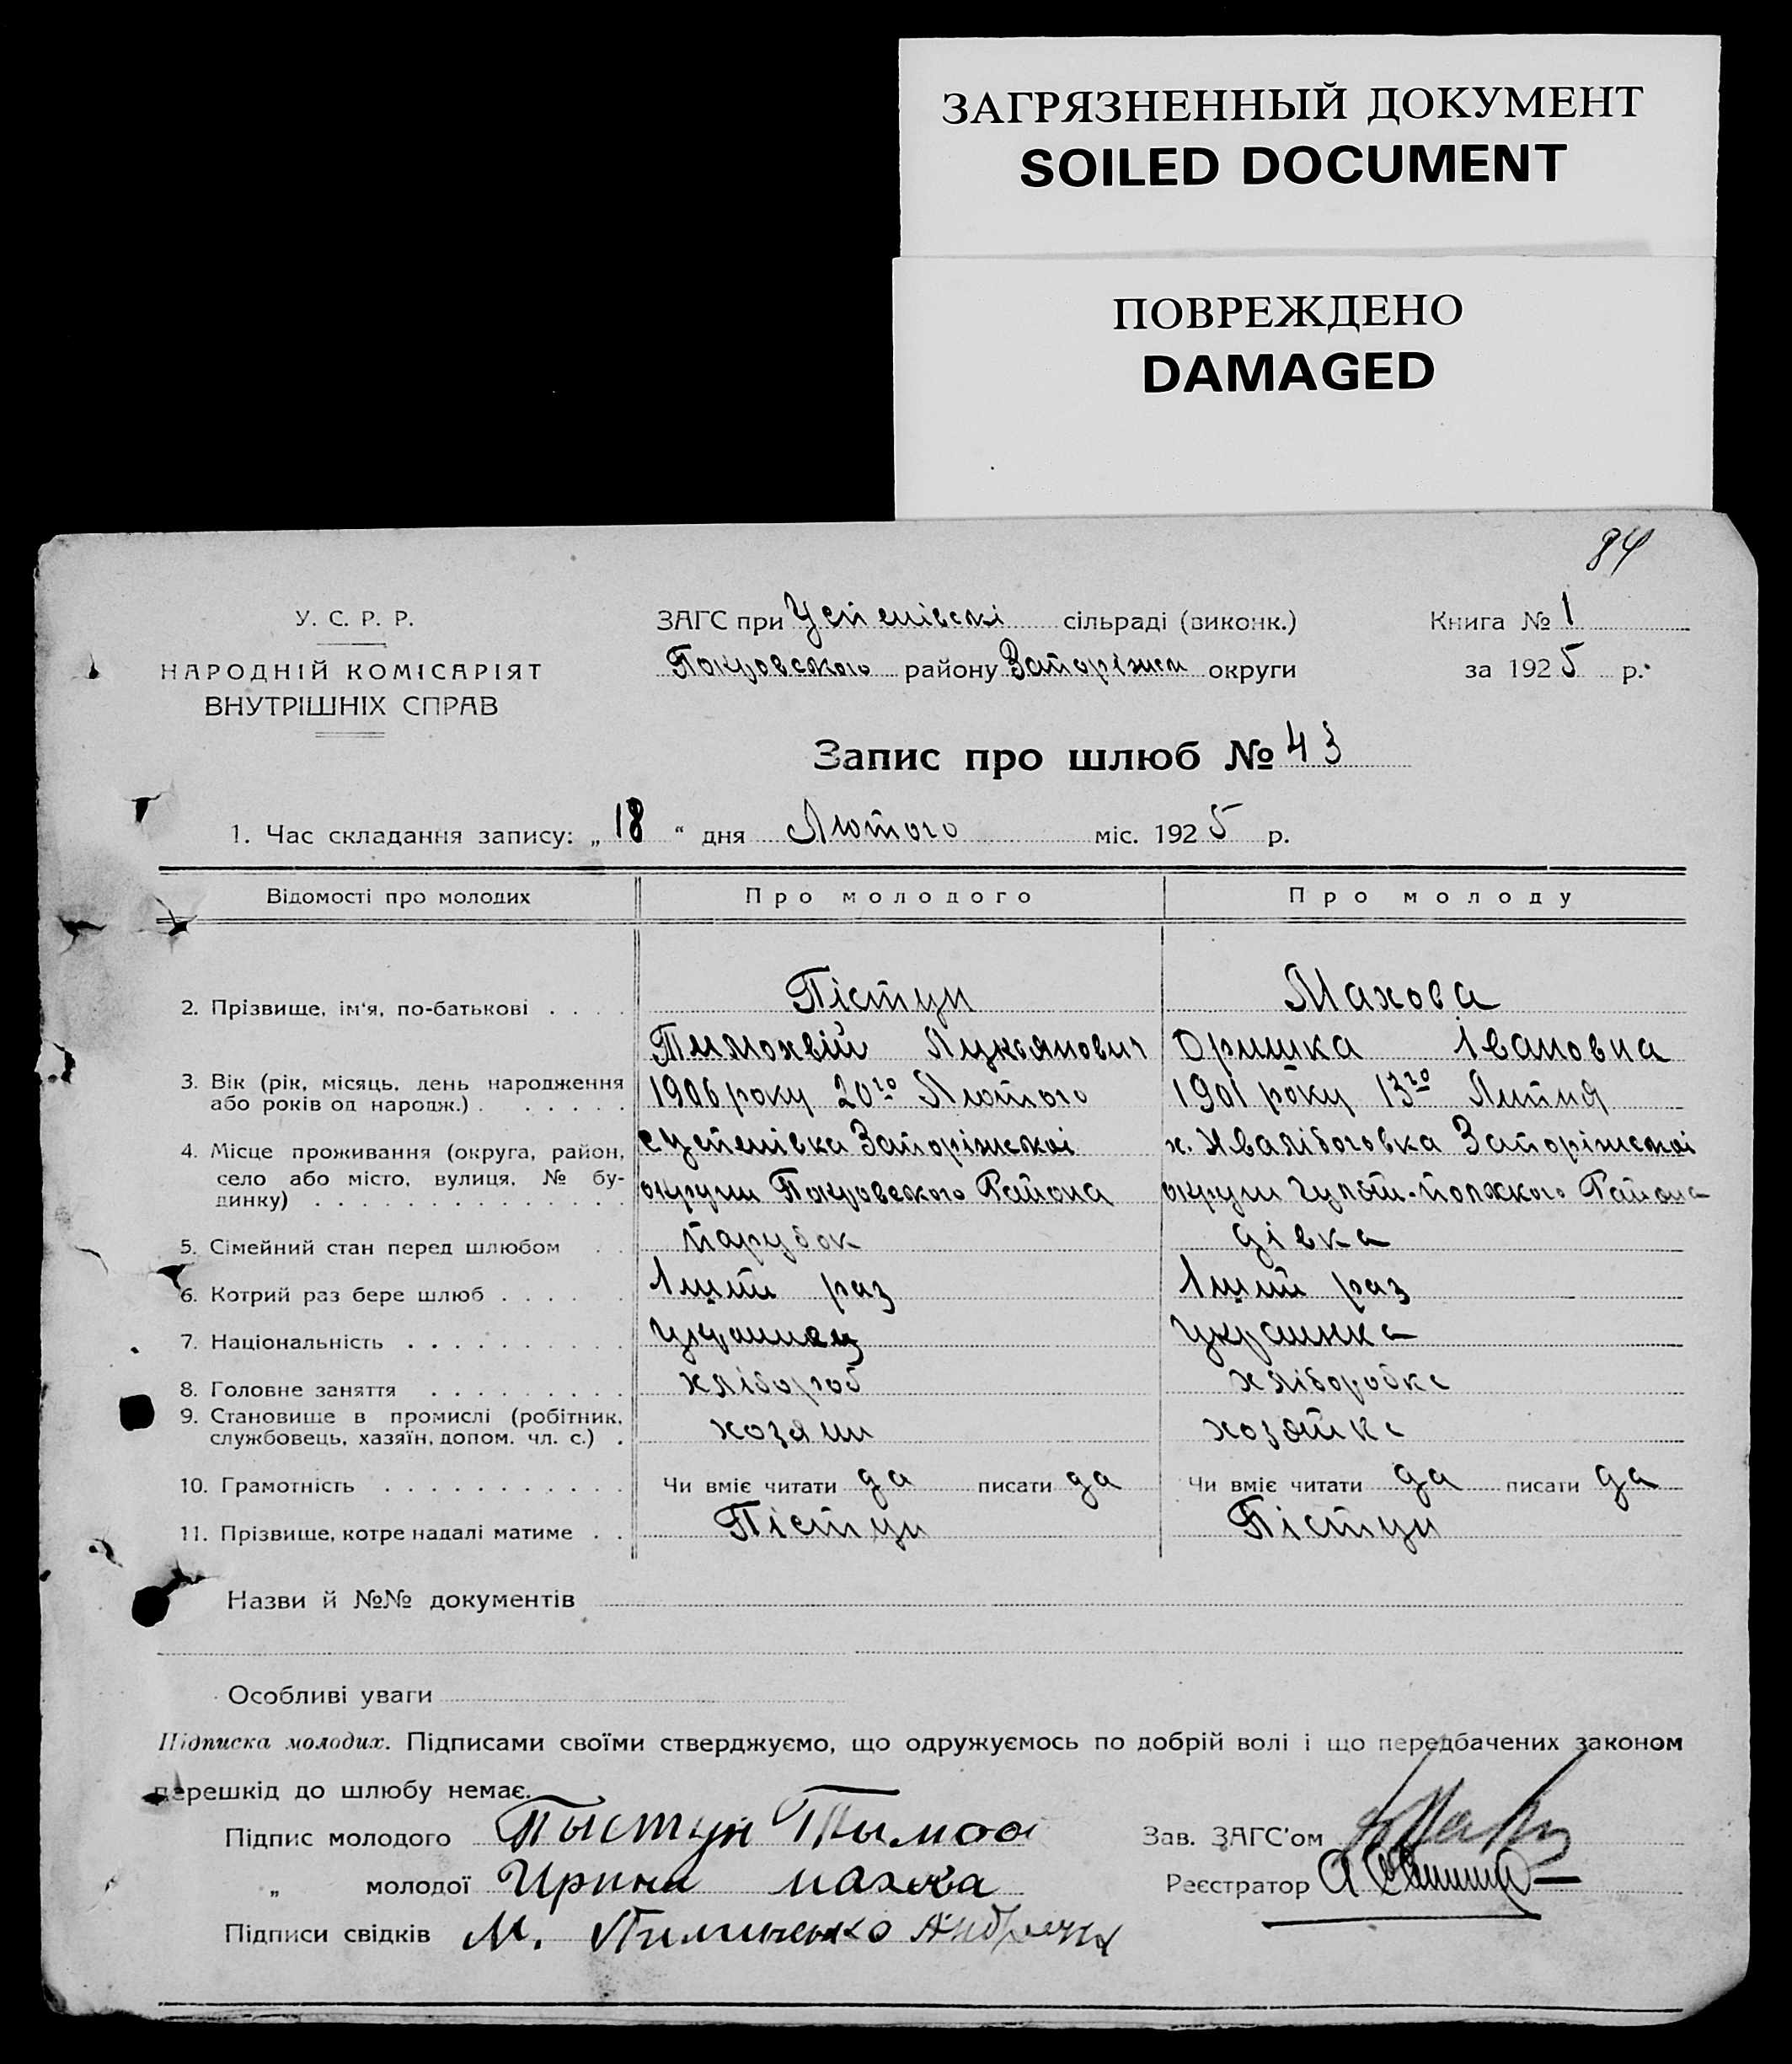 ЗАГРЯЗНЕННЫЙ ДОКУМЕНТ
SOILED DOCUMENT
ПОВРЕЖДЕНО
DAMAGED
84
У. С. Р. Р.
НАРОДНІЙ КОМІСАРІЯТ
ВНУТРІШНІХ СПРАВ
ЗАГС при Успенівскі сільраді (виконк.)
Покровского району Запоріжск округи
Книга № 1
за 1925 р.
Запис про шлюб № 43
1. Час складання запису: „18“ дня Лютого міс. 1925 р.
Відомості про молодих Про молодого Про молоду
2. Прізвище, ім'я, по-батькові . . . . Пістун Махова
Тимохвій Лукьянович Оришка Івановна
3. Вік (рік, місяць, день народження
або років од народж.) . . . . . . 1906 року 20го Лютого 1901 року 13го Липня
4. Місце проживання (округа, район, с Успенівка Запоріжскоі х. Запоріжскоі
село або місто, вулиця, № бу-
динку) . . . . . . . . . . . . . . округи Покровского Района округи Гуляй-польского Района
5. Сімейний стан перед шлюбом . . парубок дівка
6. Котрий раз бере шлюб . . . . . 1ший раз 1ший раз
7. Національність . . . . . . . . . . украинец украинка
8. Головне заняття . . . . . . . . . хлібороб хліборобка
9. Становище в промислі (робітник,
службовець, хазяїн, допом. чл. с.) . хозяин хозяйка
10. Грамотність . . . . . . . . . . . Чи вміє читати да писати да Чи вміє читати да писати да
11. Прізвище, котре надалі матиме . . Пістун Пістун
Назви й №№ документів
Особливі уваги
Підписка молодих. Підписами своїми стверджуємо, що одружуємось по добрій волі і що передбачених законом
перешкід до шлюбу немає.
Підпис молодого Пыстун Зав. ЗАГС'ом
„ молодої Ирина махова Реєстратор
Підписи свідків М.